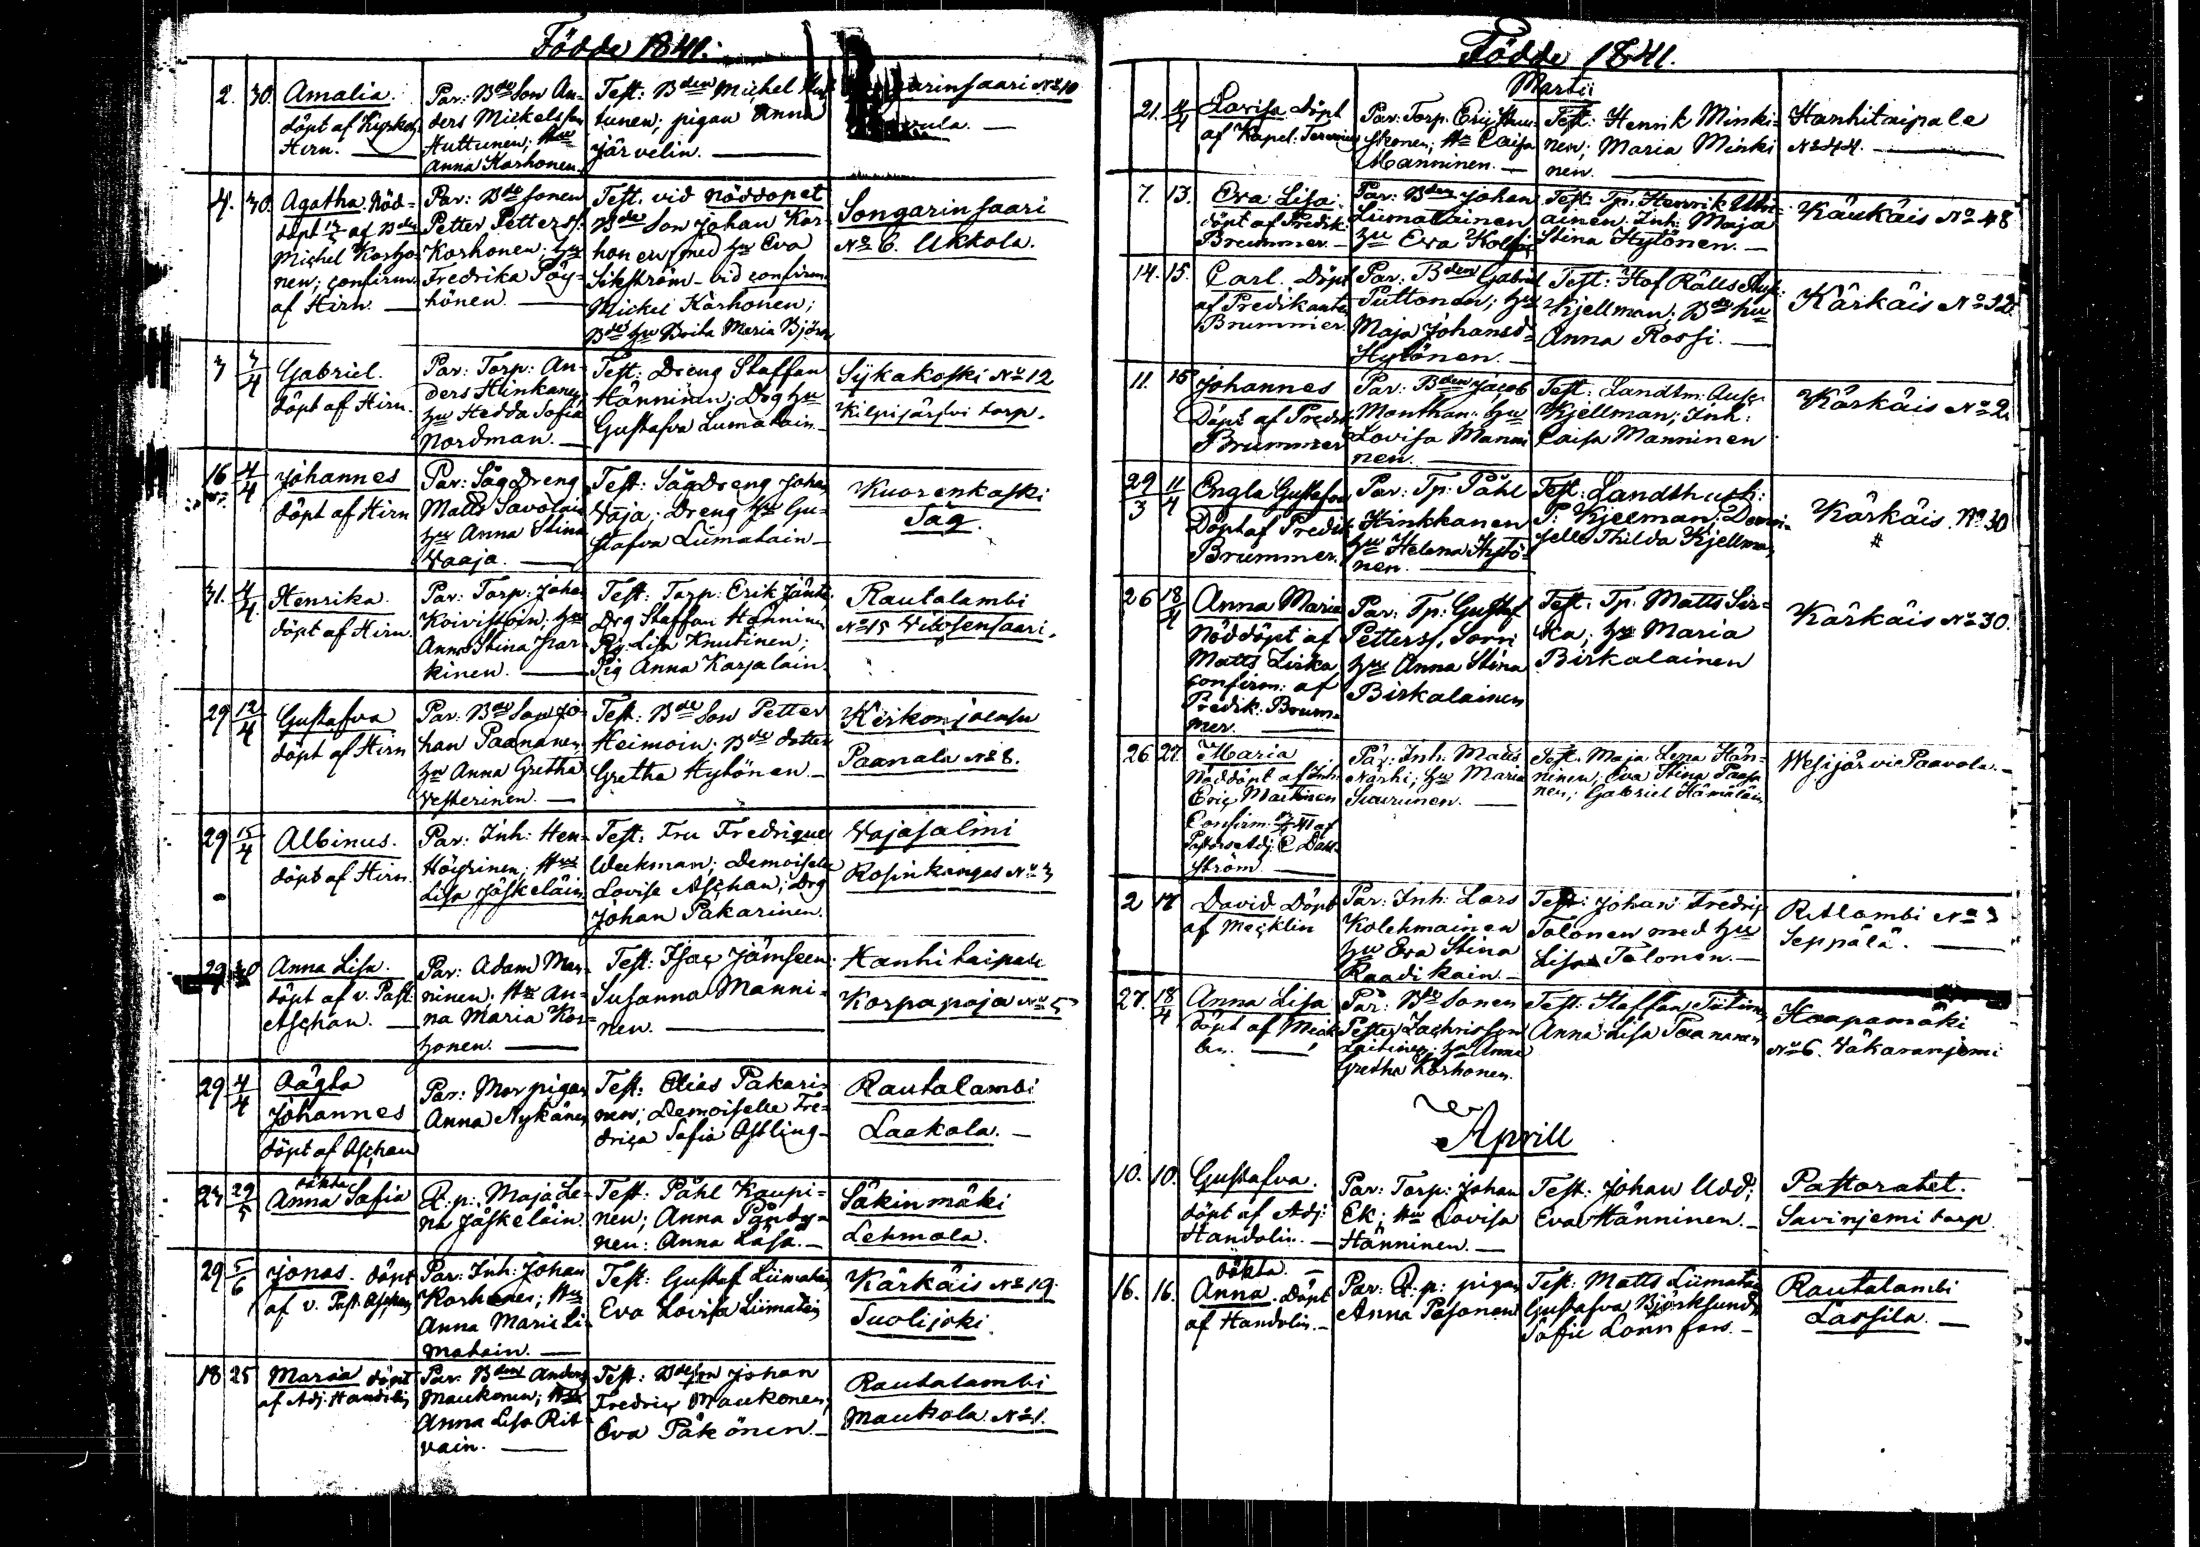 Födde 1841.
2. 30. Amalia.
döpt af Kyrkoh
Hirn.
Par: Bde Son An-
ders Mickelsson
Huttunen; Hu
Anna Korhonen.
Test: Bden Michel Hut-
tunen; pigan Anna
Järvelin.
arinsaari No 10
4. 30. Agatha. Nöd-
döpt af Bden
Michel Korho-
nen; confirm.
af Hirn.
Par: Bde sonen
Petter Petterss.
Korhonen; hu
Fredrika Pöy-
hönen.
Test. vid nöddopet
Bde Son Johan Kor-
honen, med hu Eva
vid confirm
Mickel Korhonen;
Bdes hu Brita Maria Björn
Songarinsaari
No 6. Ukkola.
3 3/4 Gabriel.
döpt af Hirn.
Par: Torp: An-
ders Hinkanen
hu Hedda Sofia
Nordman.
Test: Dreng Staffan
Hänninen; Drg hu
Gustafva Liimatain
Sykäkoski No 12
Kilpijärfvi torp.
16 4/4 Johannes
döpt af Hirn
Par: Sågdreng
Matts Savolain
hu Anna Stina
Waaja.
Test: Sågdreng Johan
Waja; Dreng hu Gu-
stafva Liimatain
Kuorenkoski
Såg.
31. 4/4. Henrika.
döpt af Hirn.
Par: Torp: Johan
Koivistoin; hu
Anna Stina
kinen.
Test: Torp: Erik Jänt
Drg Staffan Hänninen
Pig Lisa Knutinen;
Pig Anna Karjalain
Rautalambi
No 15
29 12/4 Gustafva
döpt af Hirn
Par: Bde Son Jo-
han Paananen
hu Anna Gretha
Vesterinen.
Test: Bde Son Petter
Heimoin; Bde dotter
Gretha Hytönen
Kerkonjoensu
Paanala No 8.
29 15/4 Albinus.
döpt af Hirn.
Par: Inh: Hen-
Höyrinen; Hu
Lisa Jäskeläin
Test: Fru Fredrique
Weckman; Demoiselle
Lovise Aschan; Drg
Johan Pakarinen.
Wajasalmi
Rosinkangas No 3
29 30 Anna Lisa.
döpt af v. Past.
Aschan.
Par: Adam Man-
ninen; Hu An-
na Maria Kor-
honen.
Test: Isac Jämseen
Susanna Manni-
nen.
Hanhitaipale
Korpapaja No 5
29 4/4 Oägta
Johannes
döpt af Aschan
Par: Mor pigan
Anna Nykänen
Test: Elias Pakari-
nen; Demoiselle Fre-
drica Sofia Östling
Rautalambi
Laakola.
23 29/5 oäkta
Anna Sofia
Q. p: Maja Le-
na Jäskeläin
Test: Påhl Kaupi-
nen; Anna Pöndy-
nen: Anna Lasa.
Säkinmäki
Lehmola.
29 5/6 Jonas. döpt
af v. Past. Aschan
Par: Inh: Johan
Korhonen; Hu
Anna Maria Li-
matain.
Test: Gustaf Liimatain
Eva Lovisa Liimatain
Kärkäis No 19.
Suolijoki.
18 25 Maria döpt
af Adj. Handolin
Par: Bden Anders
Maukonen; Hu
Anna Lisa Rit-
vain.
Test: Bde son Johan
Fredric Maukonen;
Eva Päkönen
Rautalambi
Maukola. No 1.
Födde 1841.
Marti
21. 4/4 Lovisa döpt
af Kapel.
Par: Torp: Eric
skonen; Hu Caisa
Manninen.
Test: Henrik Minki-
nen; Maria Minki
nen.
Hanhitaipale
No 44.
7. 13. Eva Lisa
döpt af Predik:
Brummer.
Par: Bden Johan
Liimatainen
hu Eva
Test: Tp: Henrik
ainen. Inh: Maja
Stina Hytönen.
Kärkäis No 48
14. 15. Carl. Döpt
af Predikanten
Brummer
Par: Bden Gabriel
Puttonen; hu
Maja Johansd.
Hytönen.
Test: Hof Rätts
Kjellman; Bde hu
Anna Rossi.
Kärkäis No 32.
11. 15 Johannes
Döpt af Predik
Brummer
Par: Bden Jacob
Monthan. hu
Lovisa Manni
nen.
Test: Landtm: Ausc:
Kjellman; Inh:
Caisa Manninen
Kärkäis No 2.
29/3 11/4 Engla Gustafva
Döpt af Predik
Brummer.
Par: Tp: Påhl
Hinkkanen
hu Helena Hytö-
nen.
Test: Landth
P: Kjellman; Demoi-
selle Thilda Kjellman
Kärkäis No 30
26 18/4 Anna Maria
Nöddöpt af
Matts Sirka
confirm: af
Predik: Brum-
mer.
Par: Tp: Gustaf
Petterss. Sorri
hu Anna Stina
Birkalainen
Test: Tp: Matts Sir-
ka; hu Maria
Birkalainen
Kärkäis No 30.
26 27. Maria
Nöddöpt af Inh.
Eric Markinen
Confirm. af
Pastors Adj: C Dahl-
ström
Par: Inh: Matts
Närhi; hu Maria
Test: Maja Lena Hän-
ninen; Eva Stina Paana
nen; Gabriel Hämäläin
Wesijärvi Paavola.
2 17 David Döpt
af Mecklin
Par: Inh: Lars
Kolehmainen
hu Eva Stina
Raadikain.
Test: Johan Fredric
Tolonen med hu
Lisa Tolonen.
R:tlambi No 3
Seppälä.
27. 18/4 Anna Lisa
döpt af Meck-
lin.
Par: Bde Sonen
Petter Zachrisson
Laitinen; hu Anna
Gretha Korhonen.
Test: Staffan Tiitinen
Anna Lisa Paananen
Haapamäki
No 6. Wakaranjemi
Aprill
10. 10. Gustafva.
döpt af Adj:
Handolin.
Par: Torp: Johan
Ek; Hu Lovisa
Hänninen.
Test: Johan Udd;
Eva Hänninen.
Pastoratet.
Savinjemi torp.
16. 16. oäkta.
Anna. döpt
af Handolin.
Par: Q. p: pigan
Anna Pesonen
Test: Matts Liimatain
Gustafva Björksund
Sofie Lönnfors.
Rautalambi
Lassila.